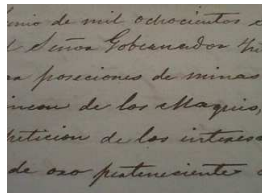 unio de mil ochocientos
Señor Gobernador
poseciones de minas
de los Magues,
peticion de los interesa
de oro pertenesiente